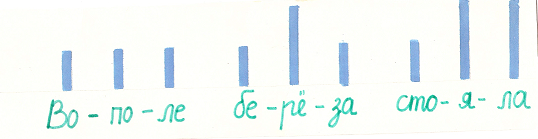 Во - по - ле бе - рё - за сто - я - ла